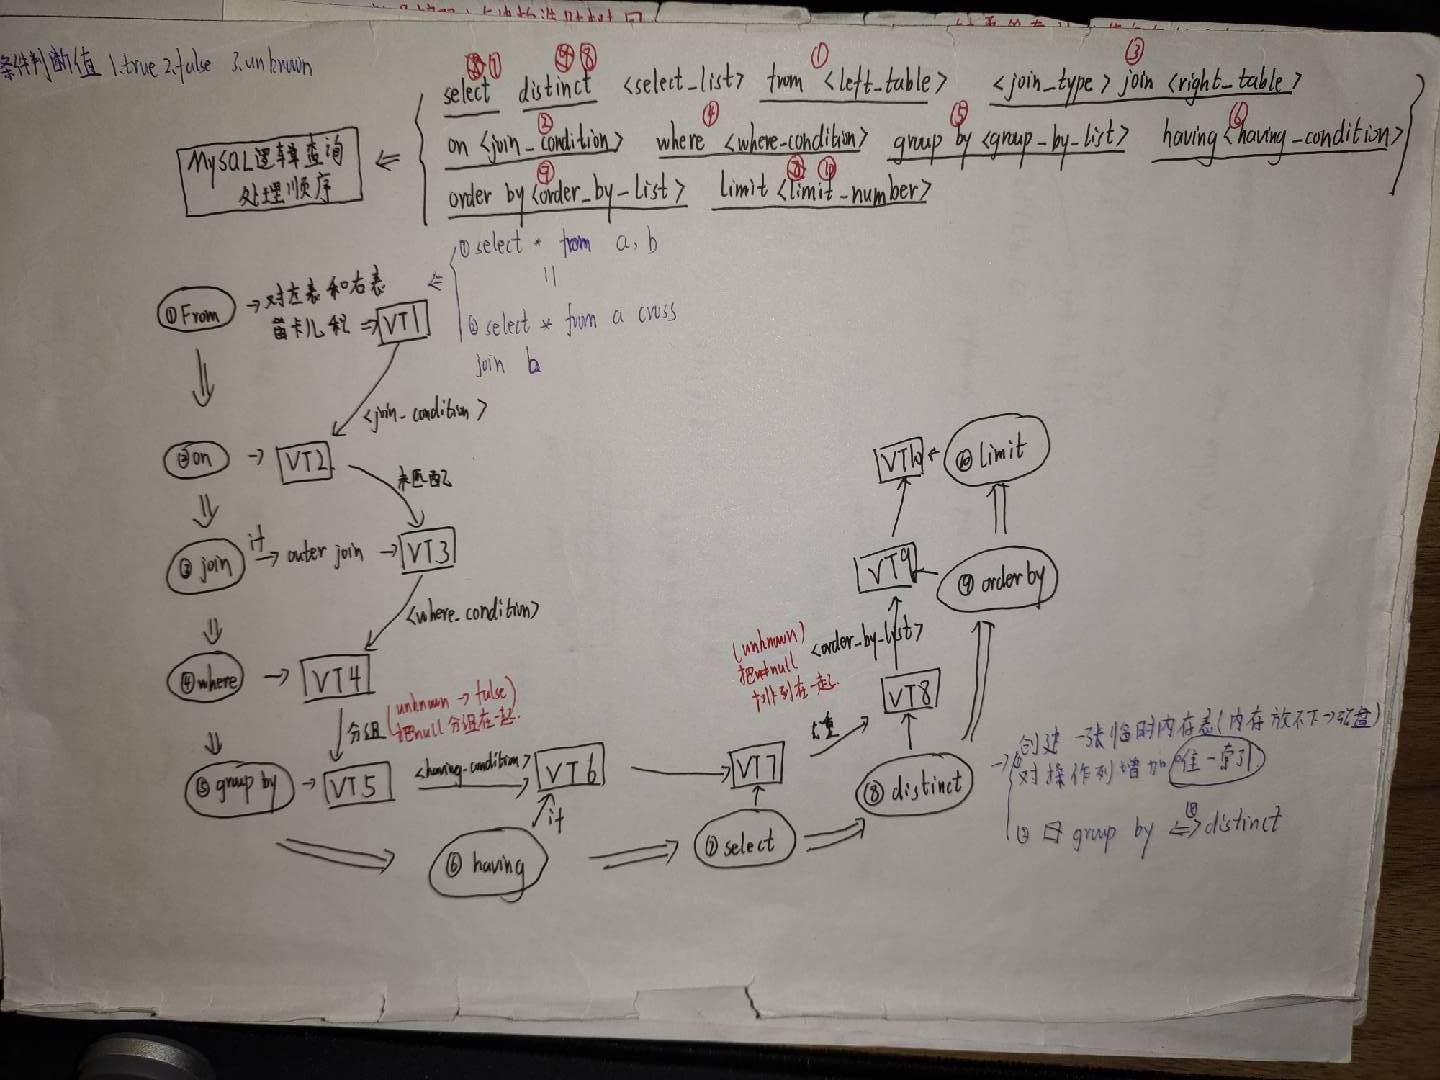 条件判断值 1.true 2.false 3.unknown
⑦ ⑧ ① ③
select distinct <select_list> from <left_table> <join_type> join <right_table>
② ④ ⑤ ⑥
on <join_condition> where <where_condition> group by <group_by_list> having <having_condition>
⑨ ⑩
order by <order_by_list> limit <limit_number>
MySQL逻辑查询
处理顺序
① select * from a, b
=
② select * from a cross
join b
① From → 对左表和右表
笛卡儿积 ⇒ VT1
<join_condition>
② on → VT2
未匹配
③ join if → outer join → VT3
<where_condition>
④ where → VT4
分组
(unknown → false)
把null分组在一起.
⑤ group by → VT5
<having_condition>
VT6
if
⑥ having
VT7
⑦ select
去重
⑧ distinct
VT8
(unknown)
把null
排列在一起.
<order_by_list>
VT9
⑨ order by
VT10 ← ⑩ limit
→ ① 创建一张临时内存表(内存放不下→磁盘)
对操作列增加唯一索引
② group by ⇔ distinct